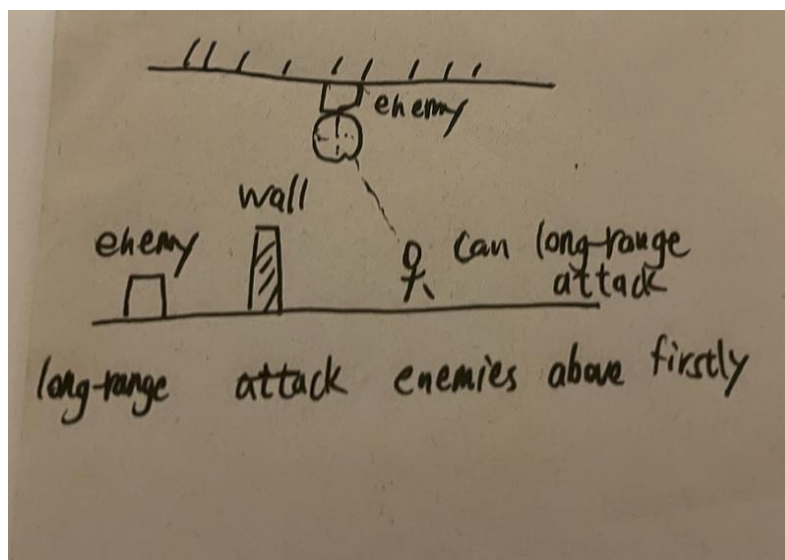 enemy
wall
enemy
can long-range
attack
long-range attack enemies above firstly